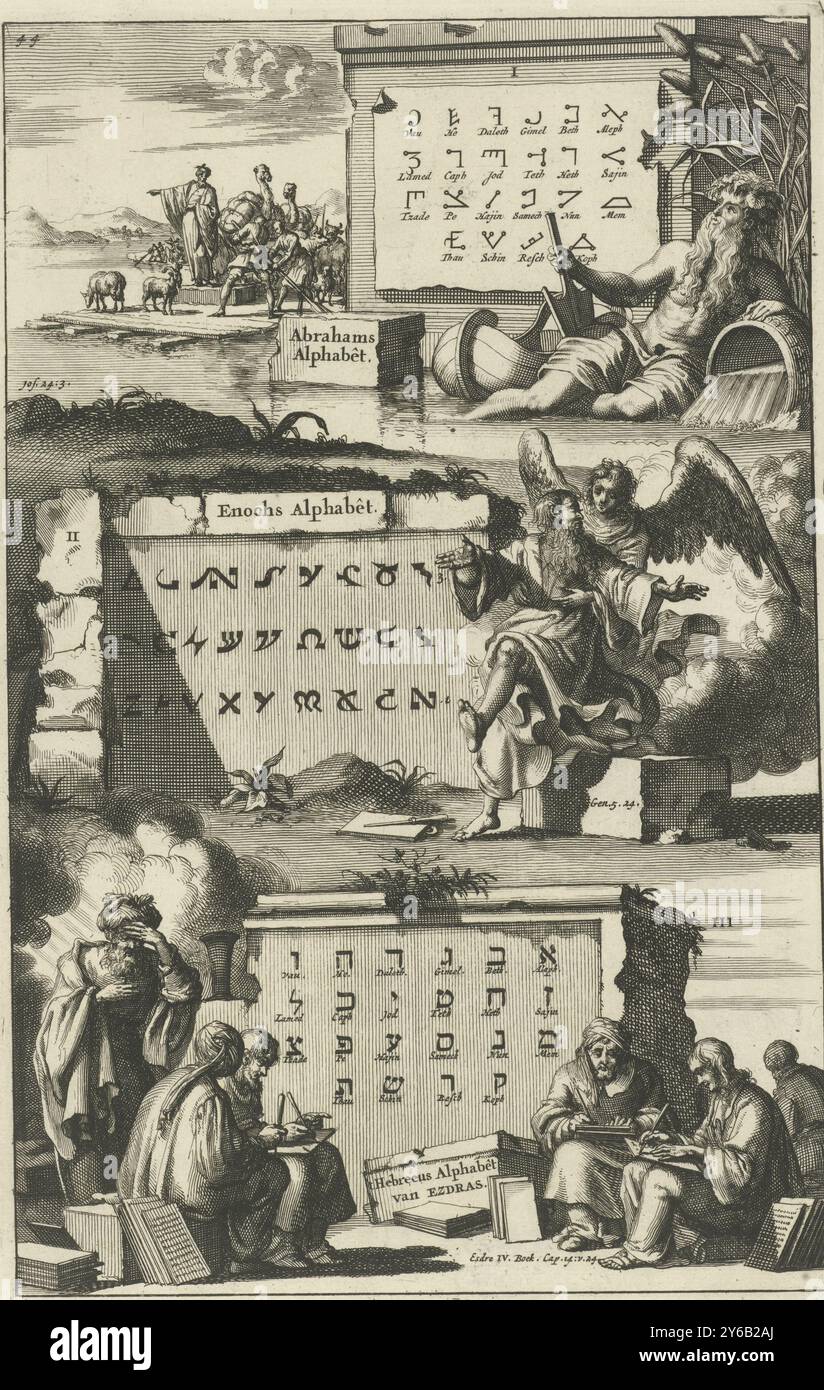 44
I
Vau He Daleth Gimel Beth Aleph
Lamed Caph Jod Teth Heth Sajin
Tzade Pe Hajin Samech Nun Mem
Thau Schin Resch Koph
Abrahams
Alphabêt.
Jos: 24: 3.
II
Enochs Alphabêt.
Gen. 5. 24.
III
א ב ג ד ה ו
Vau. He. Daleth. Gimel. Beth. Aleph.
ז ח ט י כ ל
Lamed Caph Jod Teth Heth Sajin
מ נ ס ע פ צ
Tzade Pe Hajin Samech Nun Mem
ק ר ש ת
Thau Schin Resch Koph
Hebreeus Alphabêt
van EZDRAS.
Esdre IV. Boek. Cap. 14: v. 24.
alamy
Image ID: 2YB2AJ
www.alamy.com